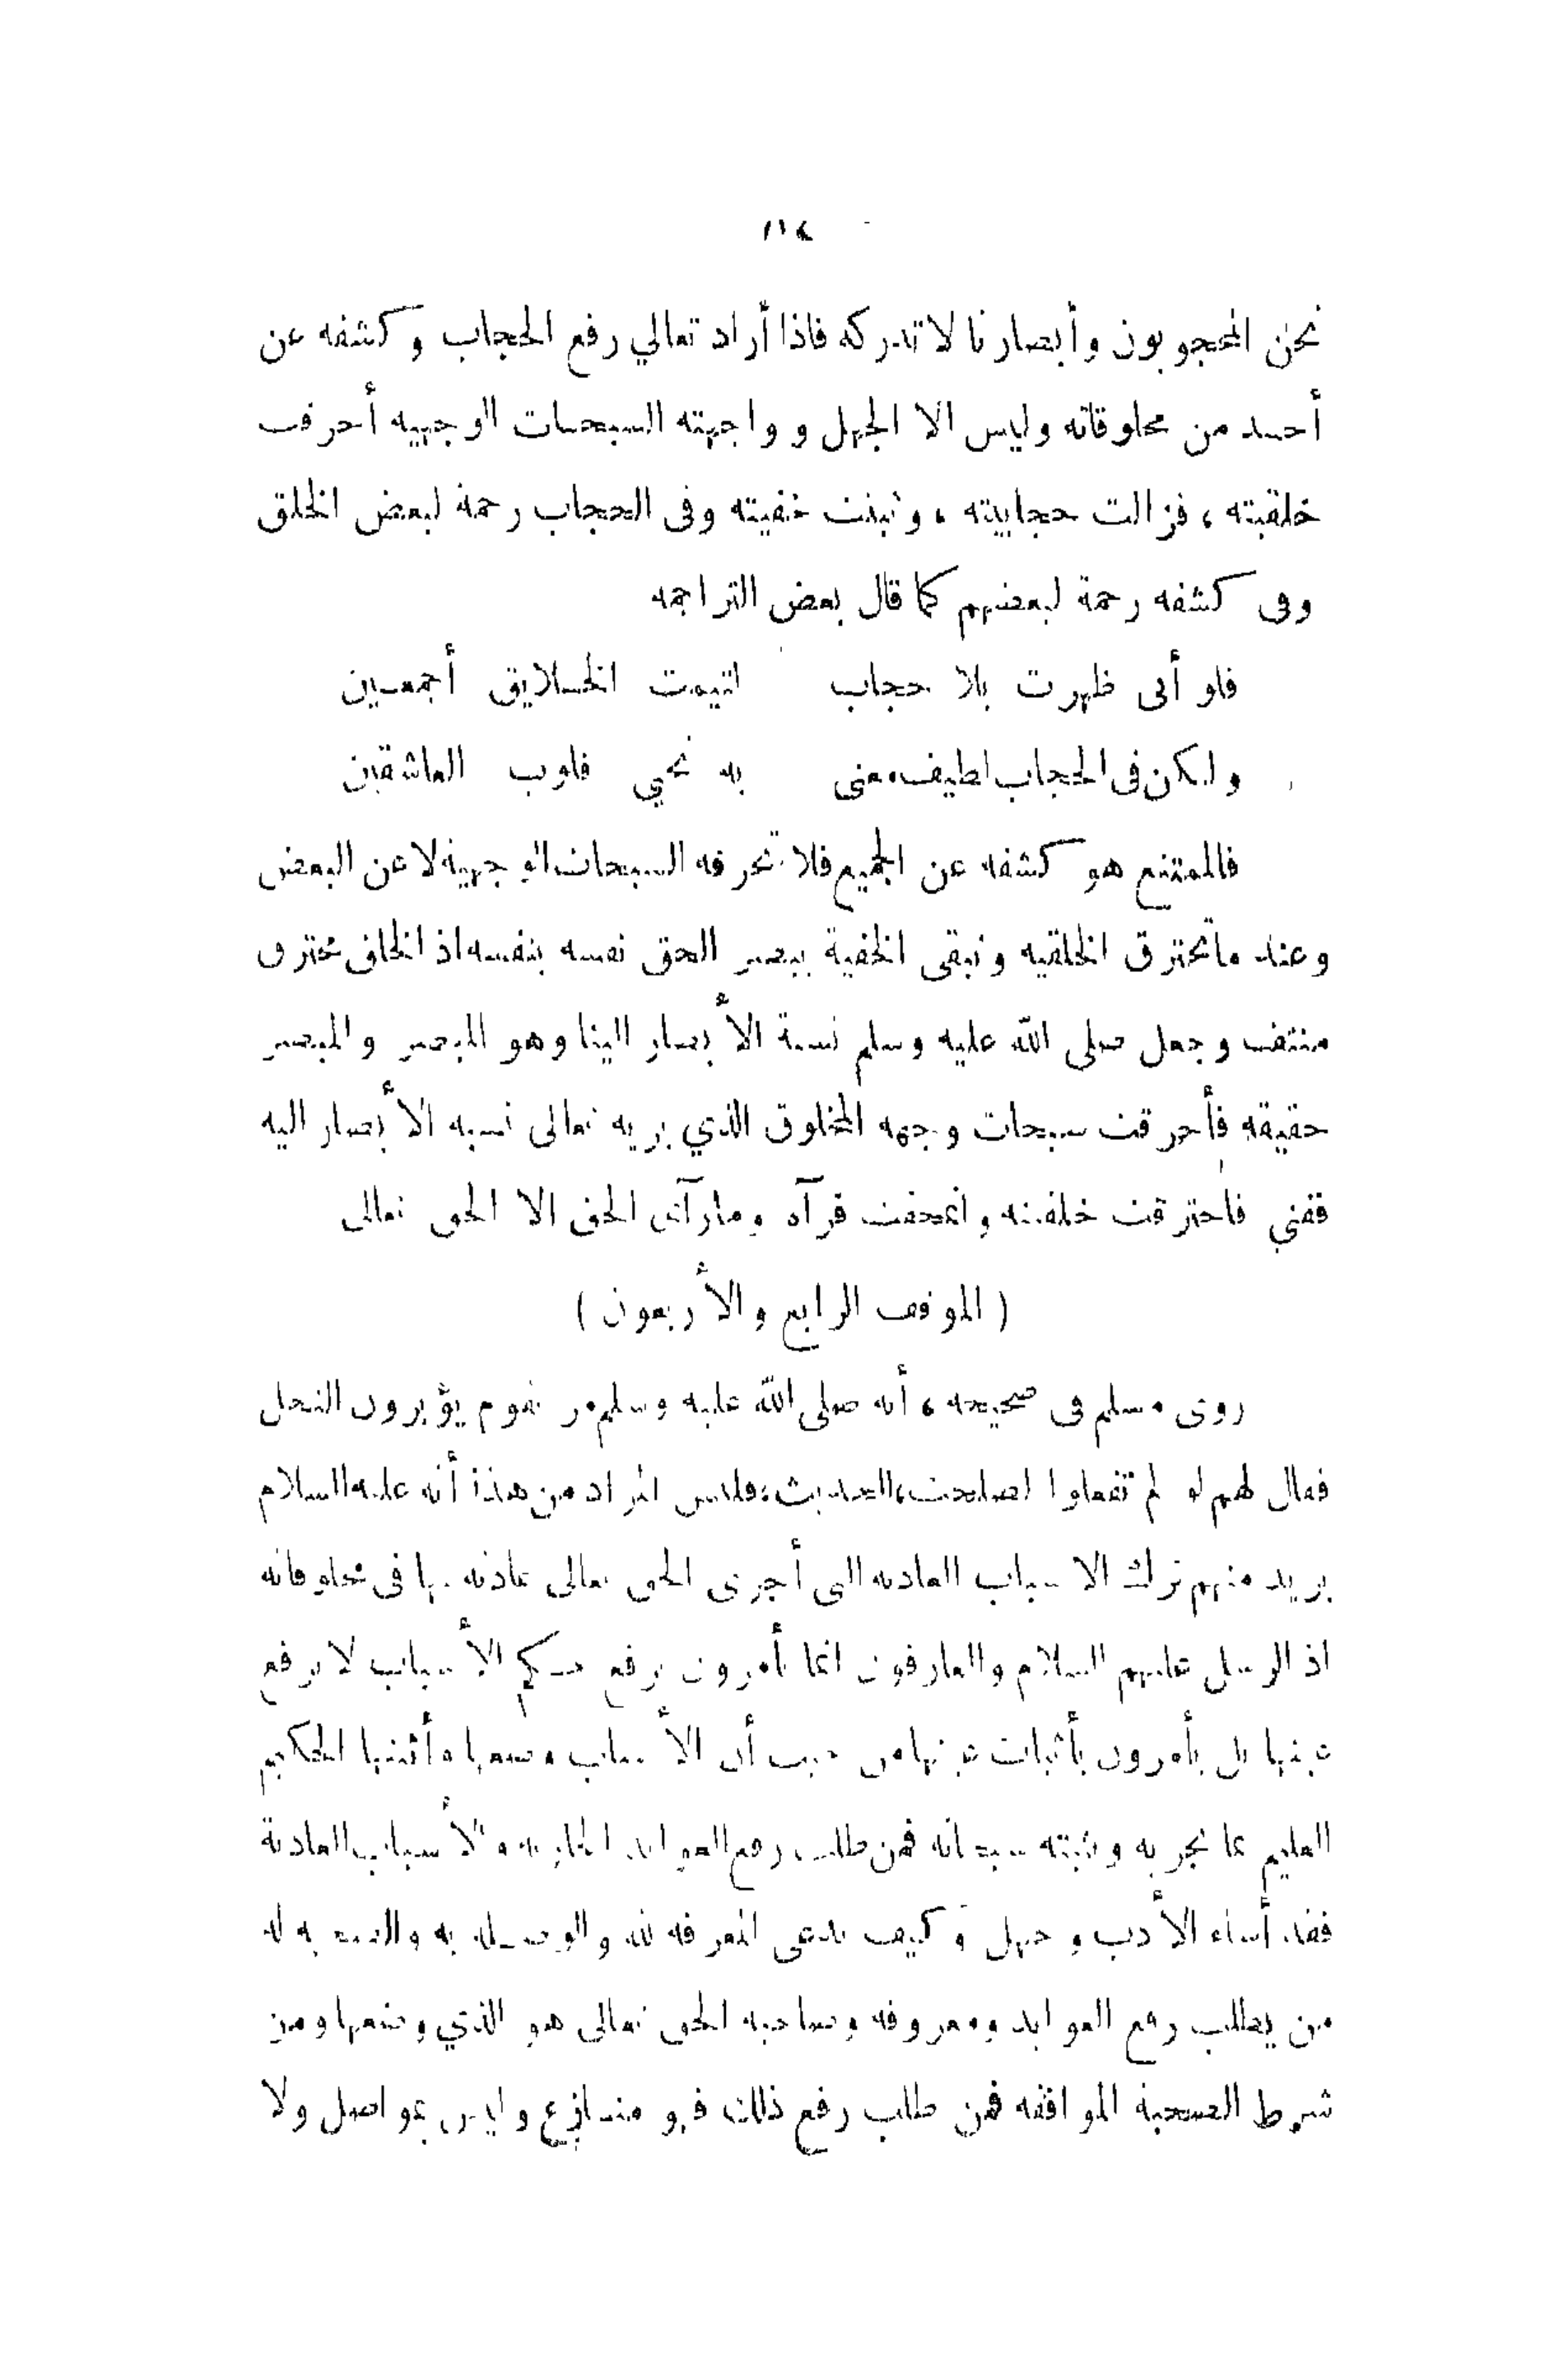 ١١٤
نحن المحجوبون وأبصارنا لا تدركه فاذا أراد تعالي رفع الحجاب وكشفه عن
أحد من مخلوقاته وليس الا الجهل وواجهته السبحات الوجهيه أحرقت
خلقيته ، فزالت حجابيته ، وبقيت خفيته وفى الحجاب رحمة لبعض الخلق
وفى كشفه رحمة لبعضهم كما قال بعض التراجمه
فلو أنى ظهرت بلا حجاب لتيمت الخلايق أجمعين
ولكن فى الحجاب لطيف معنى به تحي قلوب العاشقين
فالممتنع هو كشفه عن الجميع فلا تحرقه السبحات الوجهية لا عن البعض
وعند ما تحترق الخلقيه وتبقى الخفية يبصر الحق نفسه بنفسه اذ الخلق محترق
منتف وجعل صلى الله عليه وسلم نسبة الأبصار الينا وهو المبصر والمبصر
حقيقه فأحرقت سبحات وجهه المخلوق الذي يريه تعالى نسبه الأبصار اليه
ففني فاحترقت خلقيته وانمحقت فرآه وما رآى الحق الا الحق تعالى
( الموقف الرابع والأربعون )
روى مسلم فى صحيحه ، أنه صلى الله عليه وسلم مر بقوم يؤبرون النخل
فقال لهم لو لم تفعلوا لصلحت، الحديث، فليس المراد من هذا أنه عليه السلام
يريد منهم ترك الاسباب العاديه التى أجرى الحق تعالى عادته بها فى مخلوقاته
اذ الرسل عليهم السلام والعارفون انما يأمرون برفع حكم الأسباب لا برفع
عينها بل يأمرون بأثبات عينها من حيث أن الأسباب وضعها وأثبتها الحكيم
العليم بما يجريه ويثبته سبحانه فمن طلب رفع العوايد الجاريه والأسباب العادية
فقد أساء الأدب وجهل وكيف يدعى المعرفه لله والوصله به والصحبه له
من يطلب رفع العوايد ومعروفه وصاحبه الحق تعالى هو الذي وضعها ومن
شرط الصحبة الموافقه فمن طلب رفع ذلك فهو منازع وليس بمواصل ولا